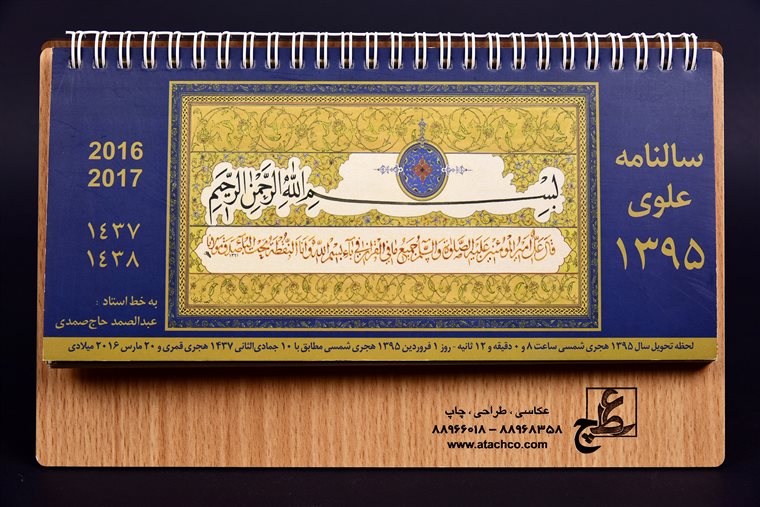 سالنامه
علوی
۱۳۹۵
2016
2017
۱٤۳۷
۱٤۳۸
به خط استاد :
عبدالصمد حاج‌صمدی
بسم الله الرحمن الرحیم
لحظه تحویل سال ۱۳۹۵ هجری شمسی ساعت ۸ و ۰ دقیقه و ۱۲ ثانیه - روز ۱ فروردین ۱۳۹۵ هجری شمسی مطابق با ۱۰ جمادی‌الثانی ۱۴۳۷ هجری قمری و ۲۰ مارس ۲۰۱۶ میلادی
عکاسی ، طراحی ، چاپ
۸۸۹۶۶۰۱۸ – ۸۸۹۶۸۳۵۸
www.atachco.com